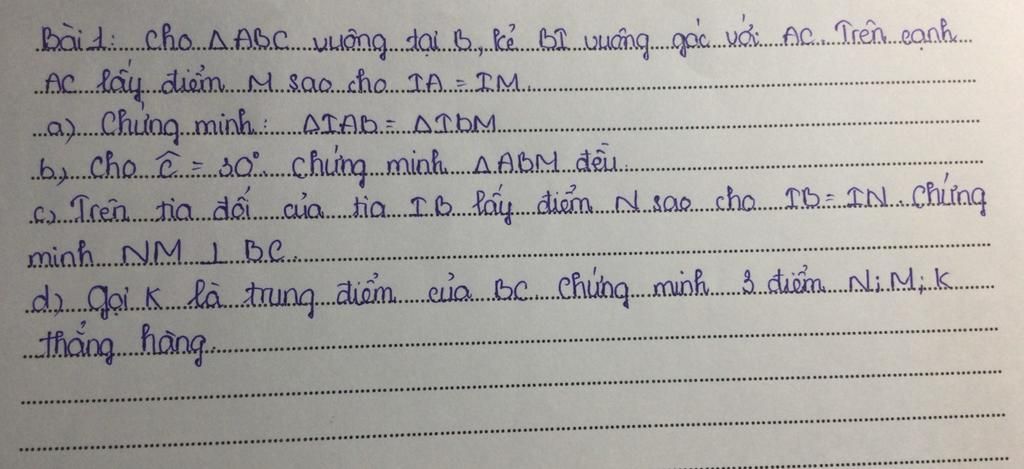 Bài 1: Cho ΔABC vuông tại B, kẻ BI vuông góc với AC. Trên cạnh
AC lấy điểm M sao cho IA = IM.
a) Chứng minh: ΔIAB = ΔIBM
b, Cho Ĉ = 30°. Chứng minh ΔABM đều.
c, Trên tia đối của tia IB lấy điểm N sao cho IB = IN. Chứng
minh NM ⊥ BC.
d) Gọi K là trung điểm của BC. Chứng minh 3 điểm N; M; K
thẳng hàng.